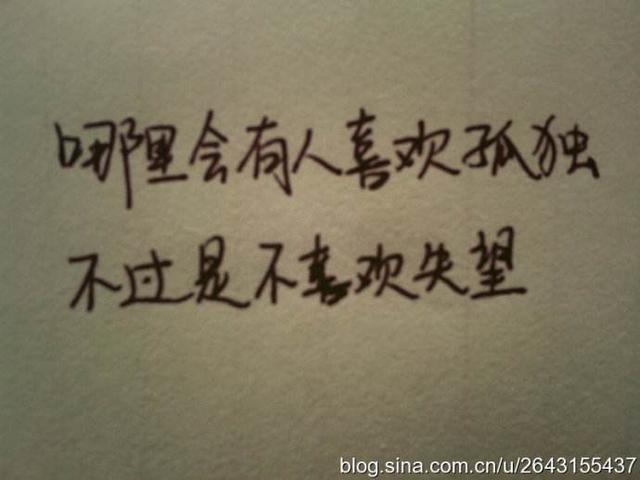 哪里会有人喜欢孤独
不过是不喜欢失望
blog.sina.com.cn/u/2643155437